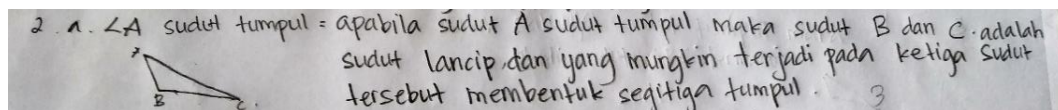 2. a. ∠A sudut tumpul = apabila sudut A sudut tumpul maka sudut B dan C. adalah
sudut lancip, dan yang mungkin terjadi pada ketiga sudut
tersebut membentuk segitiga tumpul.
B
C.
3